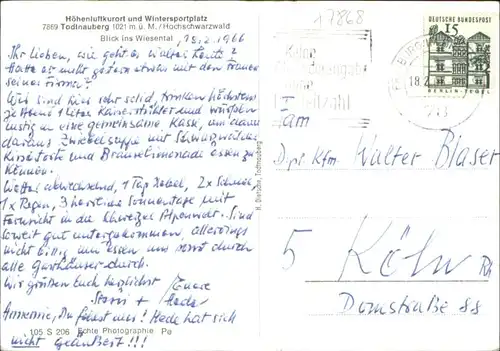 Höhenluftkurort und Wintersportplatz
7869 Todtnauberg 1021 m. ü. M. / Hochschwarzwald
Blick ins Wiesental
18.2.1966
Ihr Lieben, wie geht es Walter heute?
Hatte es mehr gestern etwas mit den
seines Firma?
Wir sind hier sehr solid, trinken höchstens
zu Abend 1 Glas Kaiserstühler und würfeln
lustig in eine gemeinsame Kasse, um dann
daraus Zwiebelsuppe mit Schwarzwälder
Kirschtorte und Brauselimonade essen zu
können.
Wetter abwechselnd, 1 Tag Nebel, 2 x Schnee,
1 x Regen, 3 herrliche Sonnentage mit
Fernsicht in die Schweizer Alpenwelt. Sind
soweit gut untergekommen allerdings
nicht billig und essen uns sonst durch
alle Gasthäuser durch.
Wir grüßen Euch herzlichst
Eure
+ Hede
Annemie, Du fehlst uns! Hede hat sich
nicht geäußert!!!
105 S 206 Echte Photographie Pe
H. Dietsche, Todtnauberg
17868
DEUTSCHE BUNDESPOST
15
BERLIN-TEGEL
18.2
Fam
Dipl. Kfm. Walter Bläser
5 Köln Rh
Domstraße 88